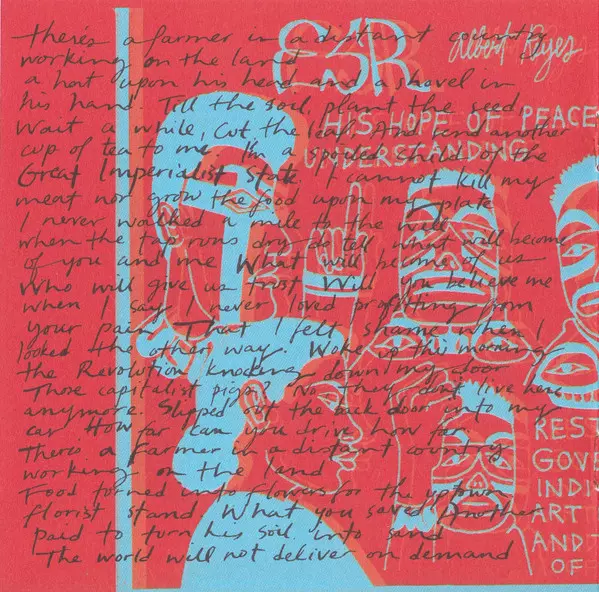 There's a farmer in a distant country
working on the land
a hat upon his head and a shovel in
his hand. Till the soil plant the seed
Wait a while, Cut the leaf, And send another
cup of tea to me I'm a spoiled child of the
Great Imperialist State. I cannot kill my
meat nor grow the food upon my plate
I never walked a mile to the well
when the tap runs dry do tell what will become
of you and me What will become of us
Who will give us trust Will you believe me
when I say I never loved profiting from
your pain That I felt shame when I
looked the other way. Woke up the morning
the Revolution knocking down my door
Those capitalist pigs? No they don't live here
anymore. Slipped out the back door into my
car How far can you drive how far
There's a farmer in a distant country
working on the land
Food turned into flowers for the uptown
florist stand What you saved Another
paid to turn his soil into sand
The world will not deliver on demand
ESR
Albert Reyes
HIS HOPE OF PEACE
UNDERSTANDING
REST
GOVE
INDI
ART
AND
OF